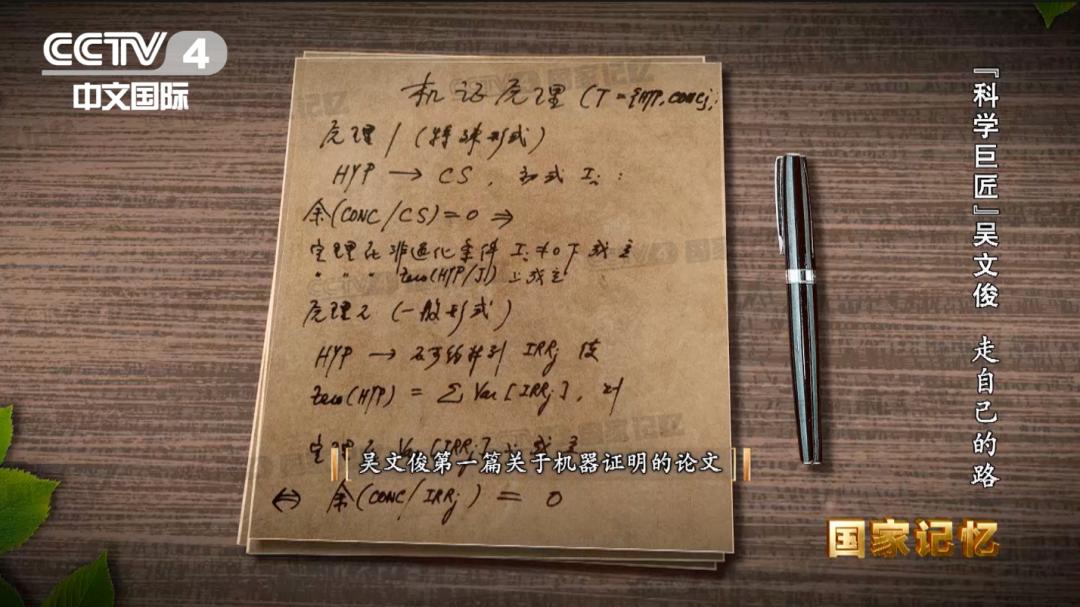 CCTV 4
中文国际
机证原理 (T = {HYP, CONC},
原理 1 (特殊形式)
HYP → CS, 初式 Ii :
余(CONC/CS)=0 ⇒
定理在非退化条件 Ii ≠0下成立
" " " Zero(HYP/J) 上成立
原理2 (一般形式)
HYP → 不可约升列 IRRj 使
Zero(HYP) = Σ Var [IRRj], 则
定理在 Var [IRRj] 上成立
吴文俊第一篇关于机器证明的论文
⇔ 余(CONC/IRRj) = 0
『科学巨匠』吴文俊 走自己的路
国家记忆